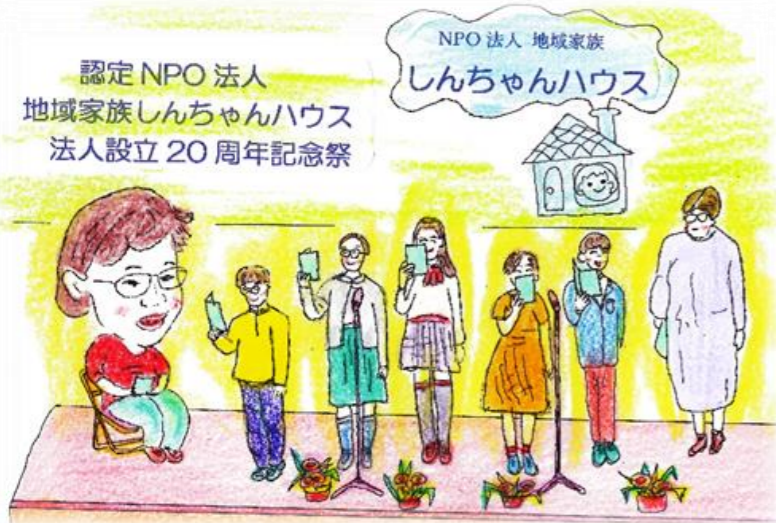 認定NPO法人
地域家族しんちゃんハウス
法人設立20周年記念祭
NPO法人 地域家族
しんちゃんハウス